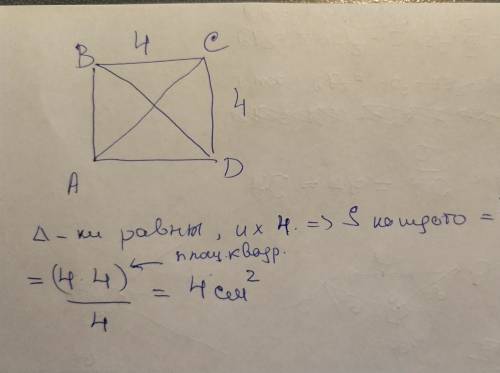 4
B C
4
A D
Δ-ки равны, их 4. => S каждого =
= (4·4) ← площ. квадр.
4
= 4 см²